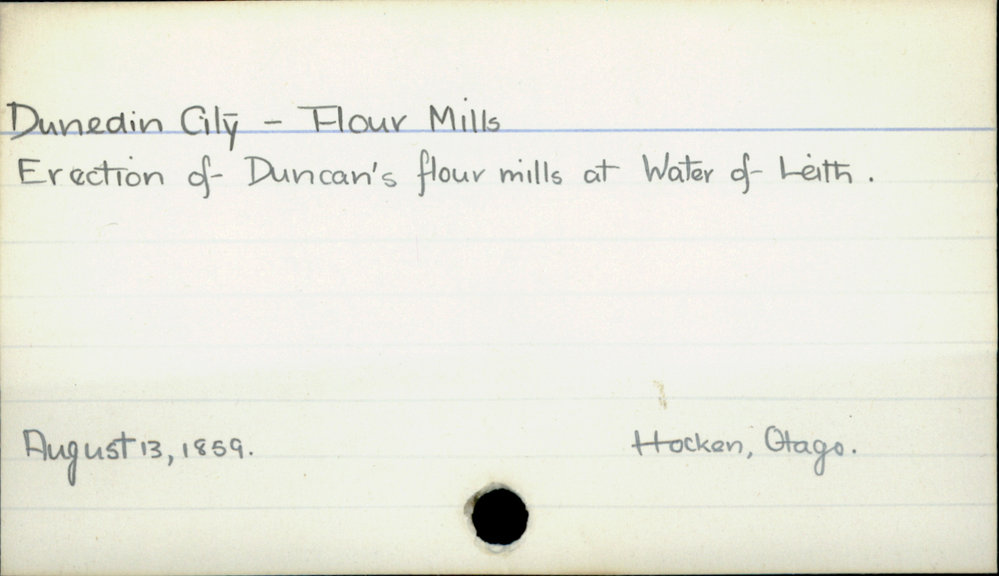 Dunedin City - Flour Mills
Erection of Duncan's flour mills at Water of Leith.
August 13, 1859.
Hocken, Otago.